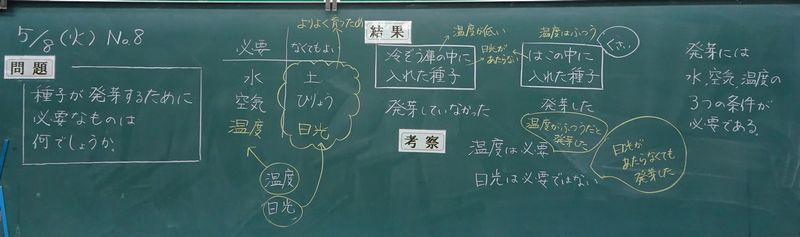 5/8(火) No.8
問題
種子が発芽するために
必要なものは
何でしょうか。
よりよく育つため
必要
なくてもよい
水
空気
温度
土
ひりょう
日光
温度
日光
結果
温度が低い
冷ぞう庫の中に
入れた種子
日光が
あたらない
温度はふつう
くさい
はこの中に
入れた種子
発芽していなかった
発芽した
温度がふつうだと
発芽した
考察
温度は必要
日光は必要ではない
日光が
あたらなくても
発芽した
発芽には
水、空気、温度の
3つの条件が
必要である。